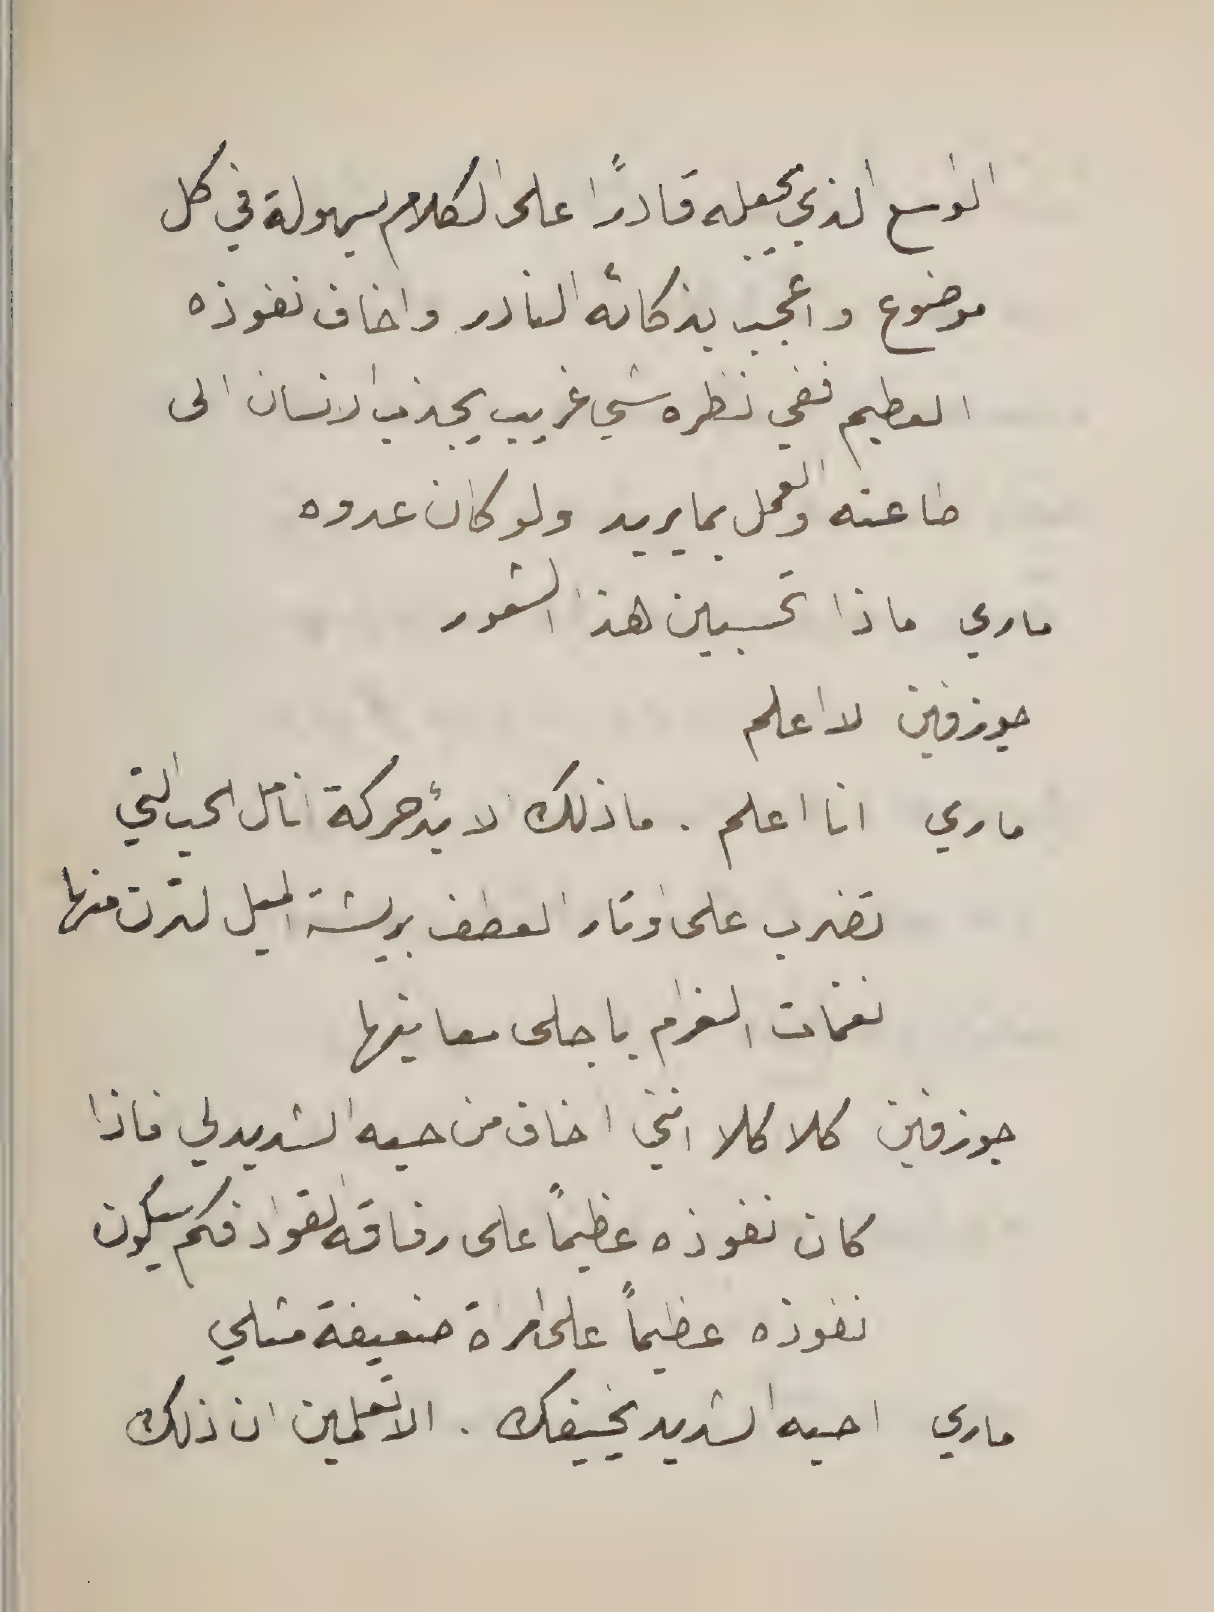 الواسع الذي يجعله قادرًا على الكلام بسهولة في كل
موضوع واعجب بذكائه النادر واخاف نفوذه
العظيم ففي نظره شي غريب يجذب الانسان الى
طاعته والعمل بما يريد ولو كان عدوه
ماري ماذا تحسبين هذا الشعور
جوزفين لا اعلم
ماري انا اعلم . ما ذلك الا حركة انامل الحب التي
تضرب على اوتار العطف بريشة الميل لترن منها
نغمات الغرام باجلى معانيها
جوزفين كلا كلا انني اخاف من حبه الشديد لي فاذا
كان نفوذه عظيماً على رفاقه القواد فكم سيكون
نفوذه عظيماً على امراة ضعيفة مثلي
ماري احبه الشديد يخيفك . الا تعلمين ان ذلك